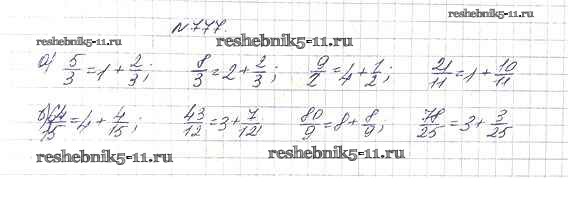 №777.
reshebnik5-11.ru
reshebnik5-11.ru
а) 5/3 = 1 + 2/3; 8/3 = 2 + 2/3; 9/2 = 4 + 1/2; 21/11 = 1 + 10/11
б) 64/15 = 4 + 4/15; 43/12 = 3 + 7/12; 80/9 = 8 + 8/9; 78/25 = 3 + 3/25
reshebnik5-11.ru
reshebnik5-11.ru